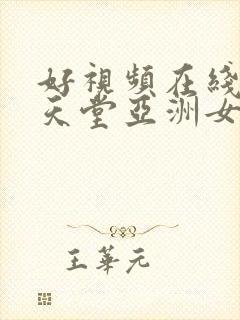 好視頻在綫
天堂亞洲女
王華元